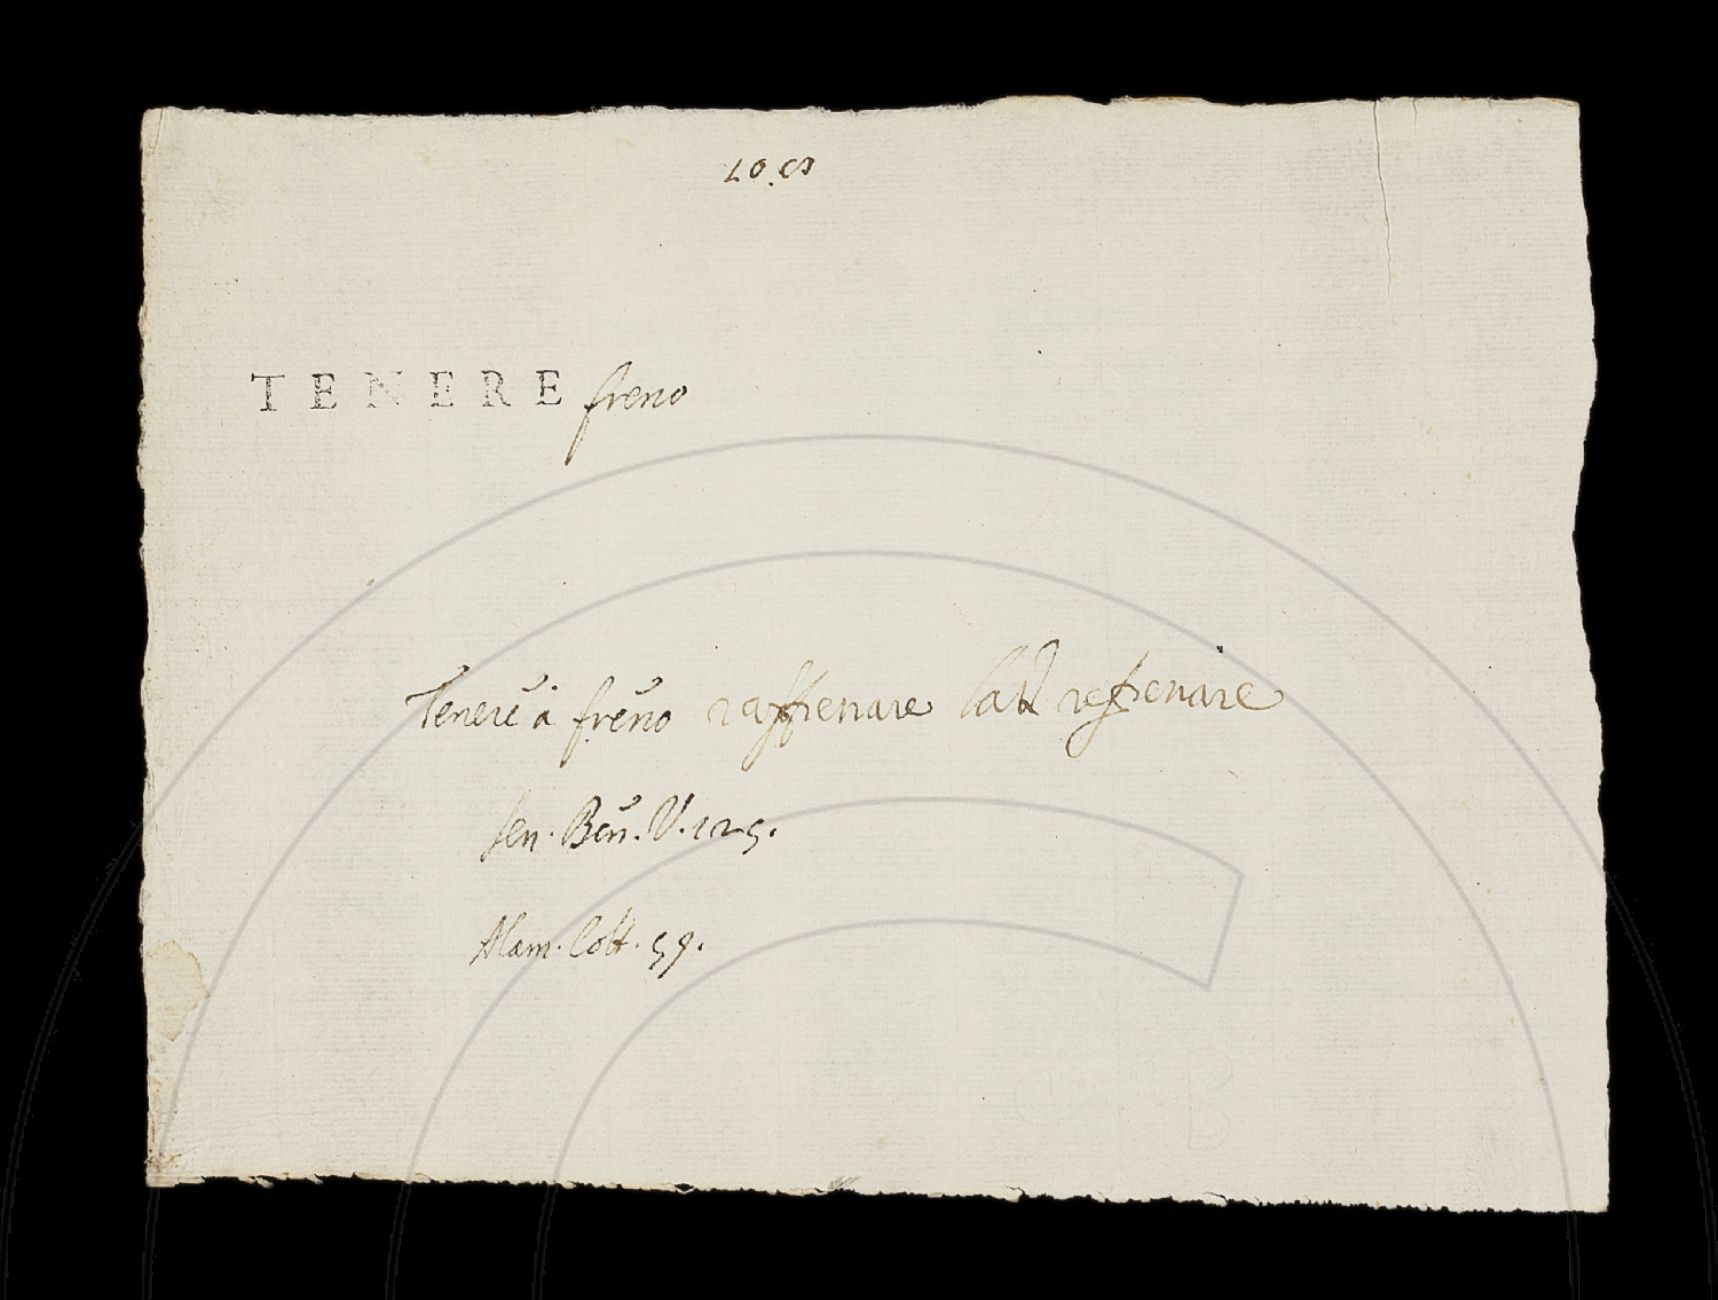 TENERE freno
Tenere à freno raffrenare Lat. refrenare
Sen. Ben. V. 125.
Alam. Colt. 59.